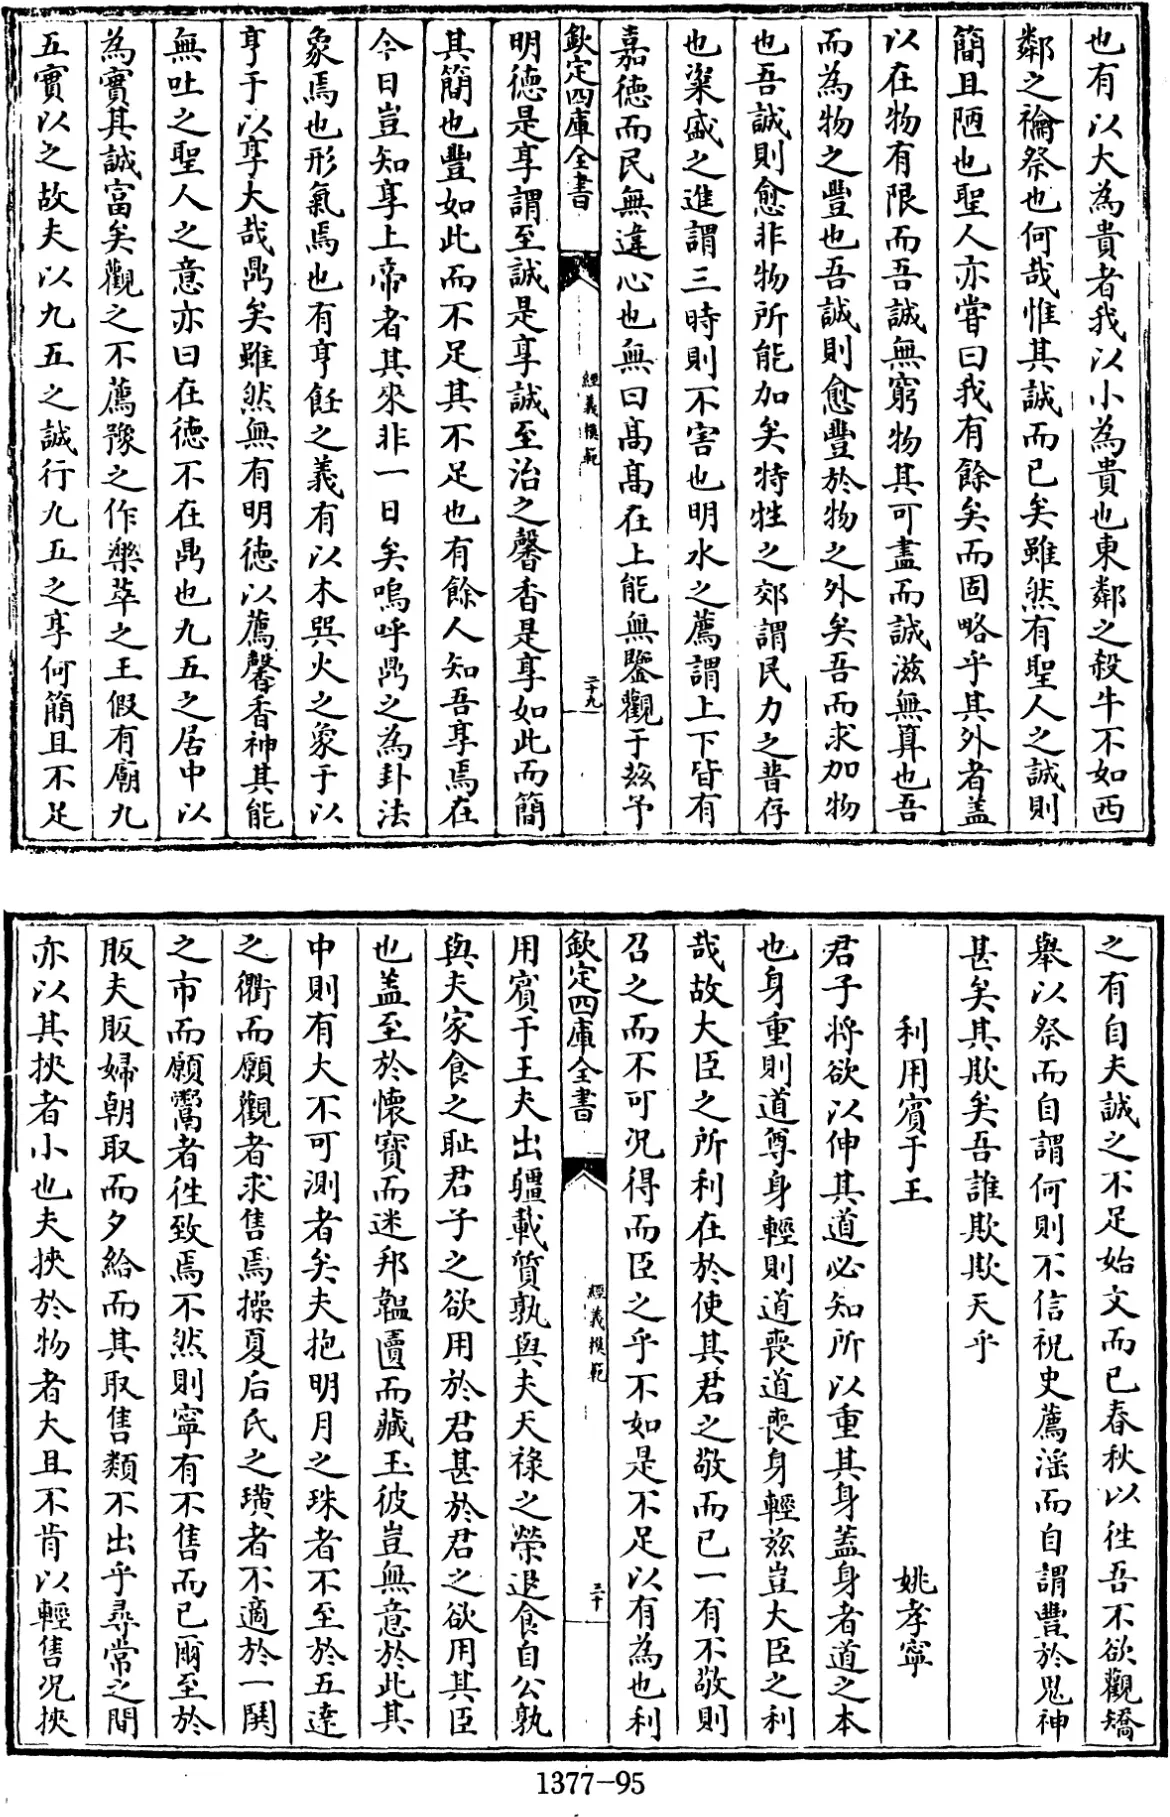 也有以大為貴者我以小為貴也東鄰之殺牛不如西
鄰之禴祭也何哉惟其誠而已矣雖然有聖人之誠則
簡且陋也聖人亦嘗曰我有餘矣而固略乎其外者蓋
以在物有限而吾誠無窮物其可盡而誠滋無算也吾
而為物之豐也吾誠則愈豐於物之外矣吾而求加物
也吾誠則愈非物所能加矣特牲之郊謂民力之普存
也粢盛之進謂三時則不害也明水之薦謂上下皆有
嘉德而民無違心也無曰髙髙在上能無鑒觀于兹予
欽定四庫全書
經義模範
二十九
明德是享謂至誠是享誠至治之馨香是享如此而簡
其簡也豐如此而不足其不足也有餘人知吾享焉在
今日豈知享上帝者其來非一日矣嗚呼鼎之為卦法
象焉也形氣焉也有亨飪之義有以木巽火之象于以
亨于以享大哉鼎矣雖然無有明德以薦馨香神其能
無吐之聖人之意亦曰在德不在鼎也九五之居中以
為實其誠富矣觀之不薦豫之作樂萃之王假有廟九
五實以之故夫以九五之誠行九五之享何簡且不足
之有自夫誠之不足始文而已春秋以往吾不欲觀矯
舉以祭而自謂何則不信祝史薦淫而自謂豐於鬼神
甚矣其欺矣吾誰欺欺天乎
利用賓于王 姚孝寧
君子將欲以伸其道必知所以重其身蓋身者道之本
也身重則道尊身輕則道喪道喪身輕兹豈大臣之利
哉故大臣之所利在於使其君之敬而已一有不敬則
召之而不可況得而臣之乎不如是不足以有為也利
欽定四庫全書
經義模範
三十
用賓于王夫出疆載質孰與夫天祿之榮退食自公孰
與夫家食之耻君子之欲用於君甚於君之欲用其臣
也蓋至於懷寶而迷邦韞匵而藏玉彼豈無意於此其
中則有大不可測者矣夫抱明月之珠者不至於五達
之衢而願觀者求售焉操夏后氏之璜者不適於一鬨
之市而願鬻者徃致焉不然則寧有不售而已爾至於
販夫販婦朝取而夕給而其取售類不出乎尋常之間
亦以其挾者小也夫挾於物者大且不肯以輕售況挾
1377-95